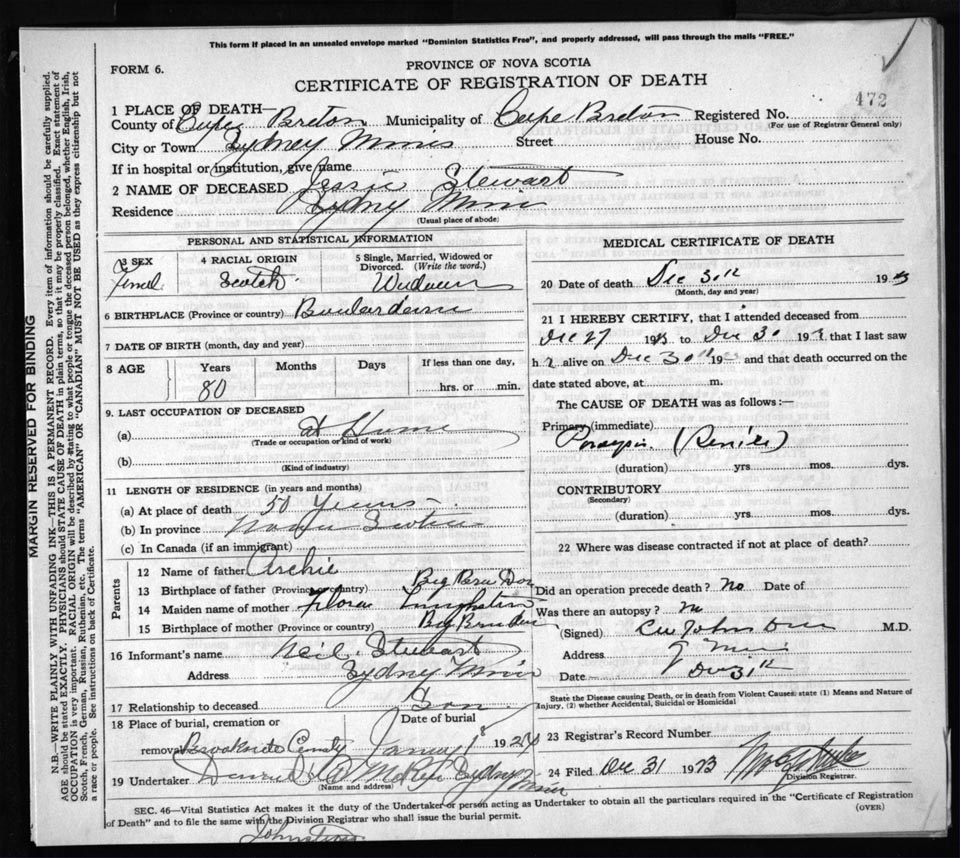 This form if placed in an unsealed envelope marked "Dominion Statistics Free", and properly addressed, will pass through the mails "FREE."
FORM 6.
PROVINCE OF NOVA SCOTIA
CERTIFICATE OF REGISTRATION OF DEATH
472
1 PLACE OF DEATH—
County of Cape Breton Municipality of Cape Breton Registered No.
(For use of Registrar General only)
City or Town Sydney Mines Street House No.
If in hospital or institution, give name
2 NAME OF DECEASED Jessie Stewart
Residence Sydney Mines
(Usual place of abode)
PERSONAL AND STATISTICAL INFORMATION
3 SEX 4 RACIAL ORIGIN 5 Single, Married, Widowed or Divorced. (Write the word.)
Scotch
6 BIRTHPLACE (Province or country) Boularderie
7 DATE OF BIRTH (month, day and year)
8 AGE Years Months Days If less than one day,
80 hrs. or min.
9. LAST OCCUPATION OF DECEASED
(a) at Home
(Trade or occupation or kind of work)
(b)
(Kind of industry)
11 LENGTH OF RESIDENCE (in years and months)
(a) At place of death 50 Years
(b) In province Nova Scotia
(c) In Canada (if an immigrant)
Parents
12 Name of father Archie
13 Birthplace of father (Province or country) Big Bras Dor
14 Maiden name of mother Flora
15 Birthplace of mother (Province or country)
16 Informant's name Neil Stewart
Address Sydney Mines
17 Relationship to deceased Son
18 Place of burial, cremation or removal Date of burial
Jan 1 1924
19 Undertaker Sydney Mines
(Name and address)
MEDICAL CERTIFICATE OF DEATH
20 Date of death Dec 30th 1923
(Month, day and year)
21 I HEREBY CERTIFY, that I attended deceased from
Dec 27 1923 to Dec 30 192 that I last saw
h alive on Dec 30th 192 and that death occurred on the
date stated above, at m.
The CAUSE OF DEATH was as follows:—
Primary (immediate)
(duration) yrs. mos. dys.
CONTRIBUTORY
(Secondary)
(duration) yrs. mos. dys.
22 Where was disease contracted if not at place of death?
Did an operation precede death? No Date of
Was there an autopsy? No
(Signed) M.D.
Address
Date Dec 31st
State the Disease causing Death, or in death from Violent Causes, state (1) Means and Nature of Injury, (2) whether Accidental, Suicidal or Homicidal
23 Registrar's Record Number
24 Filed Dec 31 1923
Division Registrar.
SEC. 46—Vital Statistics Act makes it the duty of the Undertaker or person acting as Undertaker to obtain all the particulars required in the "Certificate of Registration of Death" and to file the same with the Division Registrar who shall issue the burial permit.
(OVER)
MARGIN RESERVED FOR BINDING
N.B.—WRITE PLAINLY WITH UNFADING INK—THIS IS A PERMANENT RECORD. Every item of information should be carefully supplied.
AGE should be stated EXACTLY. PHYSICIANS should STATE CAUSE OF DEATH in plain terms, so that it may be properly classified. Exact statement of
OCCUPATION is very important. RACIAL ORIGIN will be described by stating to what people or tongue the deceased person belonged, whether English, Irish,
Scotch, French, German, Russian, Ruthenian, etc. The terms "AMERICAN" OR "CANADIAN" MUST NOT BE USED as they express citizenship but not
a race or people. See instructions on back of Certificate.